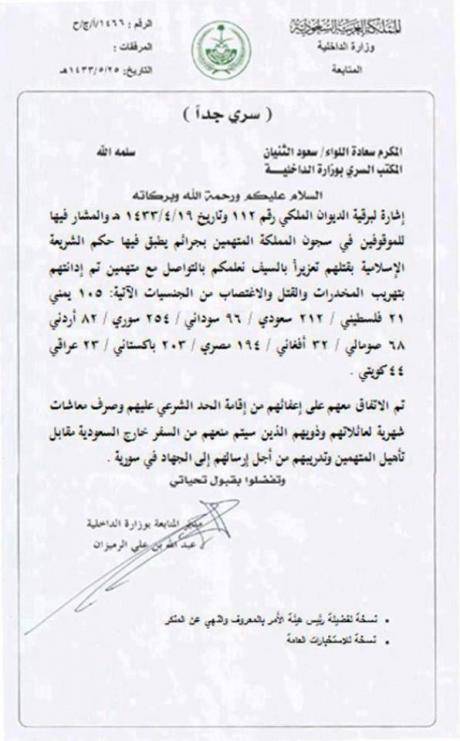 المملكة العربية السعودية
وزارة الداخلية
المتابعة
الرقم : ١٤٦٦/ا/ج/ح
المرفقات :
التاريخ: ١٤٣٣/٥/٢٥هـ
( سري جداً )
المكرم سعادة اللواء/ سعود الثنيان سلمه الله
المكتب السري بوزارة الداخليـة
السلام عليكم ورحمة الله وبركاته
إشارة لبرقية الديوان الملكي رقم ١١٢ وتاريخ ١٤٣٣/٤/١٩ هـ والمشار فيها
للموقوفين في سجون المملكة المتهمين بجرائم يطبق فيها حكم الشريعة
الإسلامية بقتلهم تعزيراً بالسيف نعلمكم بالتواصل مع متهمين تم إدانتهم
بتهريب المخدرات والقتل والاغتصاب من الجنسيات الآتية: ١٠٥ يمني
٢١ فلسطيني / ٢١٢ سعودي / ٩٦ سوداني / ٢٥٤ سوري / ٨٢ أردني
٦٨ صومالي / ٣٢ أفغاني / ١٩٤ مصري / ٢٠٣ باكستاني / ٢٣ عراقي
٤٤ كويتي .
تم الاتفاق معهم على إعفائهم من إقامة الحد الشرعي عليهم وصرف معاشات
شهرية لعائلاتهم وذويهم الذين سيتم منعهم من السفر خارج السعودية مقابل
تأهيل المتهمين وتدريبهم من أجل إرسالهم إلى الجهاد في سورية .
وتفضلوا بقبول تحياتي
مدير المتابعة بوزارة الداخلية
عبد الله بن علي الرميزان
• نسخة لفضيلة رئيس هيئة الأمر بالمعروف والنهي عن المنكر
• نسخة للاستخبارات العامة